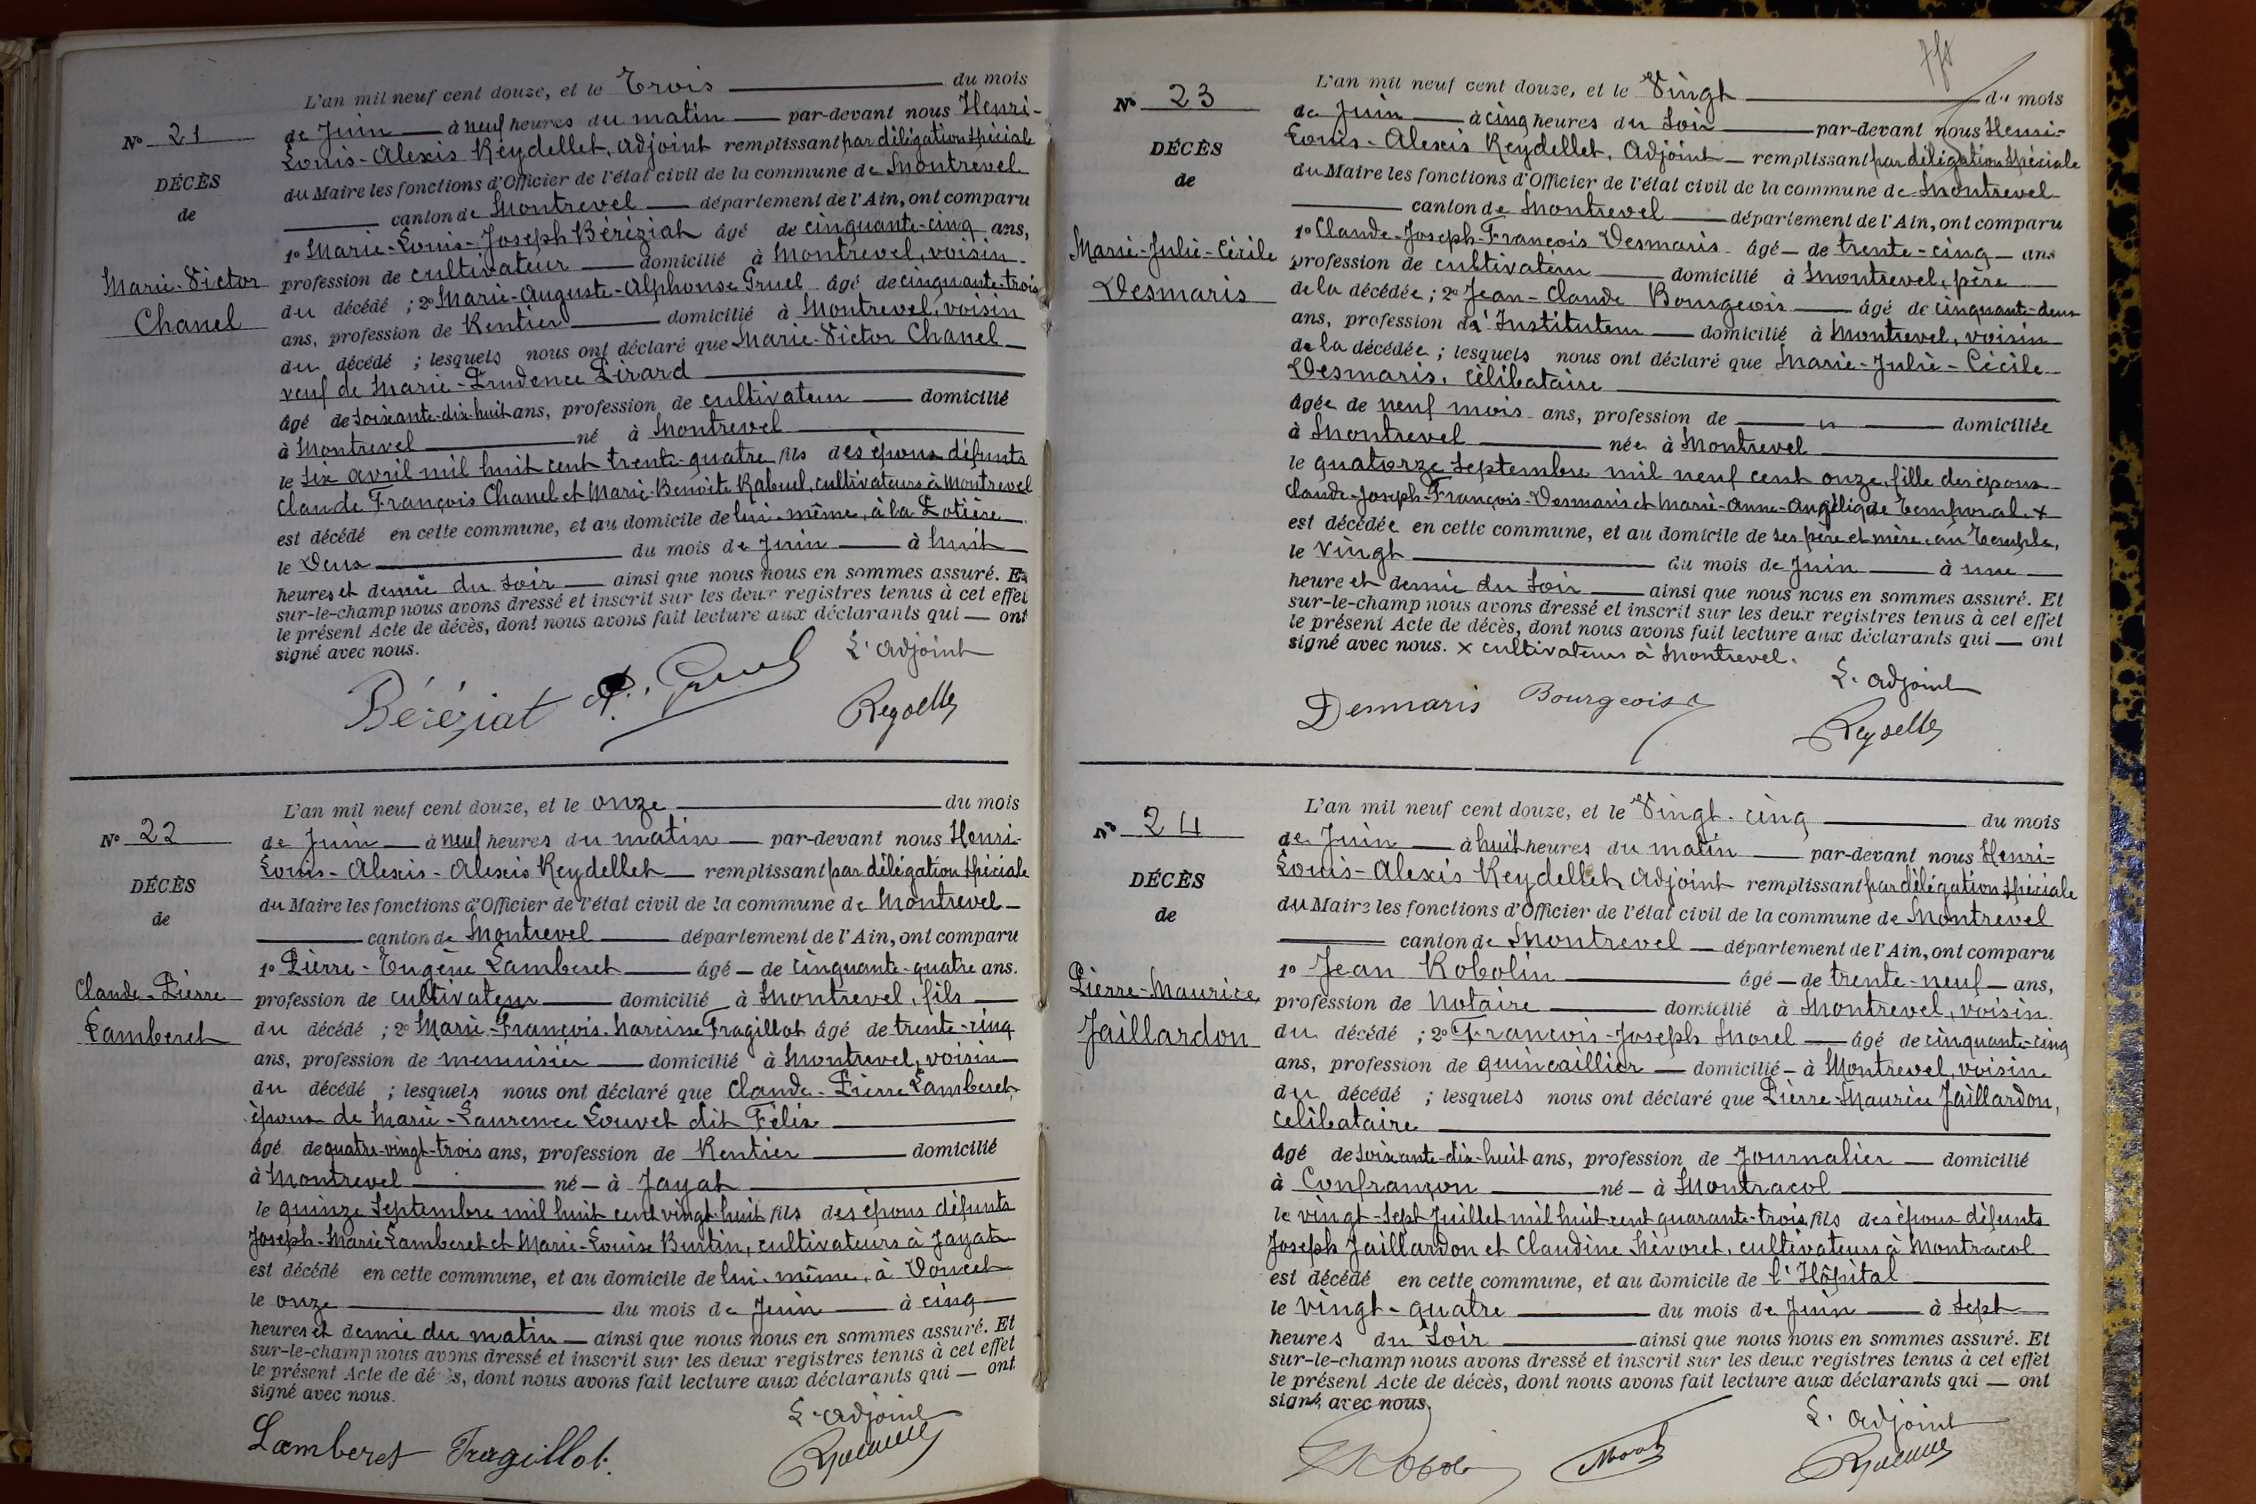 N° 21
DÉCÈS
de
Marie-Victor
Chanel
L'an mil neuf cent douze, et le Trois du mois
de Juin à neuf heures du matin par-devant nous Henri-
Louis-Alexis Reydellet, Adjoint remplissant par délégation spéciale
du Maire les fonctions d'Officier de l'état civil de la commune de Montrevel
canton de Montrevel département de l'Ain, ont comparu
1° Marie-Louis-Joseph Béréziat âgé de cinquante-cinq ans,
profession de cultivateur domicilié à Montrevel, voisin
du décédé ; 2° Marie-Auguste-Alphonse Gruel âgé de cinquante-trois
ans, profession de Rentier domicilié à Montrevel, voisin
du décédé ; lesquels nous ont déclaré que Marie-Victor Chanel
veuf de Marie-Prudence Pirard
âgé de soixante-dix-huit ans, profession de cultivateur domicilié
à Montrevel né à Montrevel
le six avril mil huit cent trente-quatre fils des époux défunts
Claude François Chanel et Marie-Benoîte Rabuel, cultivateurs à Montrevel
est décédé en cette commune, et au domicile de lui-même, à la
le Deux du mois de Juin à huit
heures et demie du soir ainsi que nous nous en sommes assuré. Et
sur-le-champ nous avons dressé et inscrit sur les deux registres tenus à cet effet
le présent Acte de décès, dont nous avons fait lecture aux déclarants qui ont
signé avec nous.
L'adjoint
Béréziat A. Gruel Reydellet
N° 22
DÉCÈS
de
Claude-Pierre
Lamberet
L'an mil neuf cent douze, et le onze du mois
de Juin à neuf heures du matin par-devant nous Henri-
Louis-Alexis-Alexis Reydellet remplissant par délégation spéciale
du Maire les fonctions d'Officier de l'état civil de la commune de Montrevel
canton de Montrevel département de l'Ain, ont comparu
1° Pierre-Eugène Lamberet âgé de cinquante-quatre ans.
profession de cultivateur domicilié à Montrevel, fils
du décédé ; 2° Marie-François-Narcisse Fragillot âgé de trente-cinq
ans, profession de menuisier domicilié à Montrevel, voisin
du décédé ; lesquels nous ont déclaré que Claude-Pierre Lamberet,
époux de Marie-Laurence Louvet dit Félix
âgé de quatre-vingt-trois ans, profession de Rentier domicilié
à Montrevel né à Jayat
le quinze Septembre mil huit cent vingt-huit fils des époux défunts
Joseph-Marie Lamberet et Marie-Louise Burtin, cultivateurs à Jayat
est décédé en cette commune, et au domicile de lui-même, à Doucet
le onze du mois de Juin à cinq
heures et demie du matin ainsi que nous nous en sommes assuré. Et
sur-le-champ nous avons dressé et inscrit sur les deux registres tenus à cet effet
le présent Acte de décès, dont nous avons fait lecture aux déclarants qui ont
signé avec nous.
L'adjoint
Lamberet Fragillot. Reydellet
N° 23
DÉCÈS
de
Marie-Julie-Cécile
Desmaris
L'an mil neuf cent douze, et le Vingt du mois
de Juin à cinq heures du soir par-devant nous Henri-
Louis-Alexis Reydellet, Adjoint remplissant par délégation spéciale
du Maire les fonctions d'Officier de l'état civil de la commune de Montrevel
canton de Montrevel département de l'Ain, ont comparu
1° Claude-Joseph-François Desmaris âgé de trente-cinq ans
profession de cultivateur domicilié à Montrevel, père
de la décédée ; 2° Jean-Claude Bourgeois âgé de cinquante-deux
ans, profession d'Instituteur domicilié à Montrevel, voisin
de la décédée ; lesquels nous ont déclaré que Marie-Julie-Cécile
Desmaris, célibataire
âgée de neuf mois ans, profession de domiciliée
à Montrevel née à Montrevel
le quatorze septembre mil neuf cent onze, fille des époux
Claude-Joseph-François Desmaris et Marie-Anne-Angélique Temporal x
est décédée en cette commune, et au domicile de ses père et mère, au Temple,
le Vingt du mois de Juin à une
heure et demie du soir ainsi que nous nous en sommes assuré. Et
sur-le-champ nous avons dressé et inscrit sur les deux registres tenus à cet effet
le présent Acte de décès, dont nous avons fait lecture aux déclarants qui ont
signé avec nous. x cultivateurs à Montrevel.
L'adjoint
Desmaris Bourgeois Reydellet
N° 24
DÉCÈS
de
Pierre-Maurice
Jaillardon
L'an mil neuf cent douze, et le Vingt-cinq du mois
de Juin à huit heures du matin par-devant nous Henri-
Louis-Alexis Reydellet Adjoint remplissant par délégation spéciale
du Maire les fonctions d'Officier de l'état civil de la commune de Montrevel
canton de Montrevel département de l'Ain, ont comparu
1° Jean Robolin âgé de trente-neuf ans,
profession de Notaire domicilié à Montrevel, voisin
du décédé ; 2° François-Joseph Morel âgé de cinquante-cinq
ans, profession de quincaillier domicilié à Montrevel, voisin
du décédé ; lesquels nous ont déclaré que Pierre-Maurice Jaillardon,
célibataire
âgé de soixante-dix-huit ans, profession de Journalier domicilié
à Confrançon né à Montracol
le vingt-sept Juillet mil huit cent quarante-trois fils des époux défunts
Joseph Jaillardon et Claudine Névoret, cultivateurs à Montracol
est décédé en cette commune, et au domicile de l'Hôpital
le vingt-quatre du mois de Juin à sept
heures du soir ainsi que nous nous en sommes assuré. Et
sur-le-champ nous avons dressé et inscrit sur les deux registres tenus à cet effet
le présent Acte de décès, dont nous avons fait lecture aux déclarants qui ont
signé avec nous.
L'adjoint
Robolin Morel Reydellet